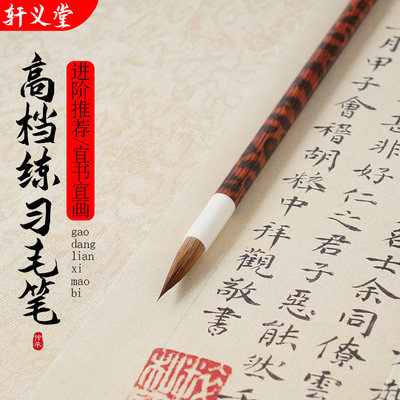 轩义堂
进阶推荐/宜书宜画
高档练习毛笔
gao
dang
lian
xi
mao
bi
士余同僚雲
非好仁之君子惡能然
月甲子會稽胡
中拜觀敬書